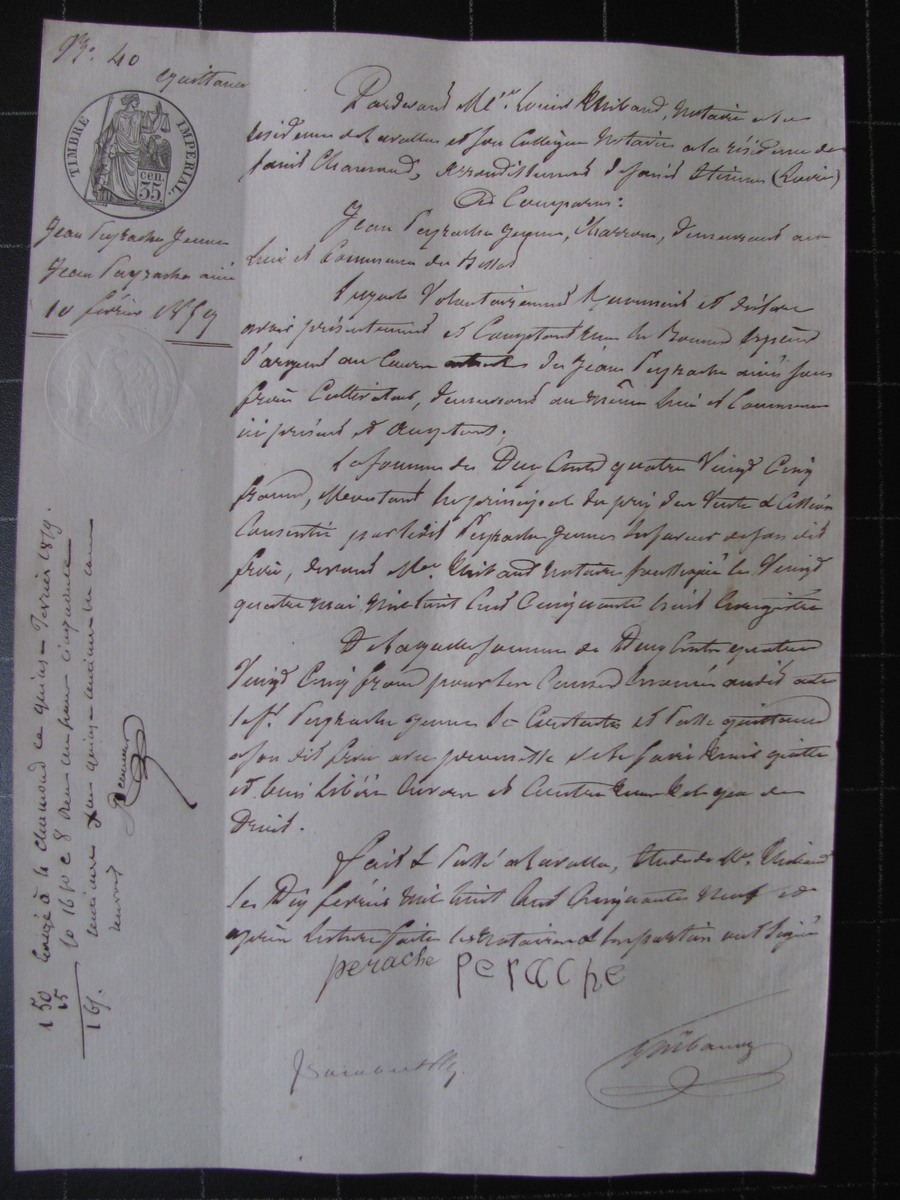 No. 40
quittance
TIMBRE IMPERIAL.
35. cen.
Jean Peyrache Jeune
Jean Peyrache ainé
10 février 1859
Pardevant Me. Louis Thibaud, Notaire a la
résidence de Lavalla et son Collègue Notaire a la résidence de
Saint Chamond, arrondissement de Saint Etienne (Loire)
A Comparu:
Jean Peyrache jeune, Charron, demeurant au
lieu et Commune du
Lequel Volontairement Reconnait et déclare
avoir présentement et Comptant reçu en Bonnes espèces
d'argent au Cours de Jean Peyrache ainé son
frère Cultivateur, demeurant au même lieu et Commune
ici présent et acceptant;
La Somme de Deux Cents quatre Vingt Cinq
francs, Montant en principal du prix de Vente & Cession
Consentie par ledit Peyrache Jeune en faveur de son dit
frère, devant Me. Thibaud Notaire soussigné le Vingt
quatre mai Mil huit Cent Cinquante huit Enregistré
De laquelle somme de Deux Cents quatre
Vingt Cinq francs pour les Causes énoncées audit acte
le Sr. Peyrache jeune Se Contente et Passe quittance
a son dit frère avec promesse de le faire tenir quitte
et bien libéré envers et Contre tous
Droit.
Fait & Passé a Lavalla, Etude de Me. Thibaud
Les Dix février Mil huit Cent Cinquante Neuf et
après lecture faite les Notaires & les parties ont Signé
perache perache
Thibaud
Enregé à St Chamond le quinze février 1859.
fo 16 Vo C 8 Reçu un franc cinquante
centimes
1 50
15
1 65.